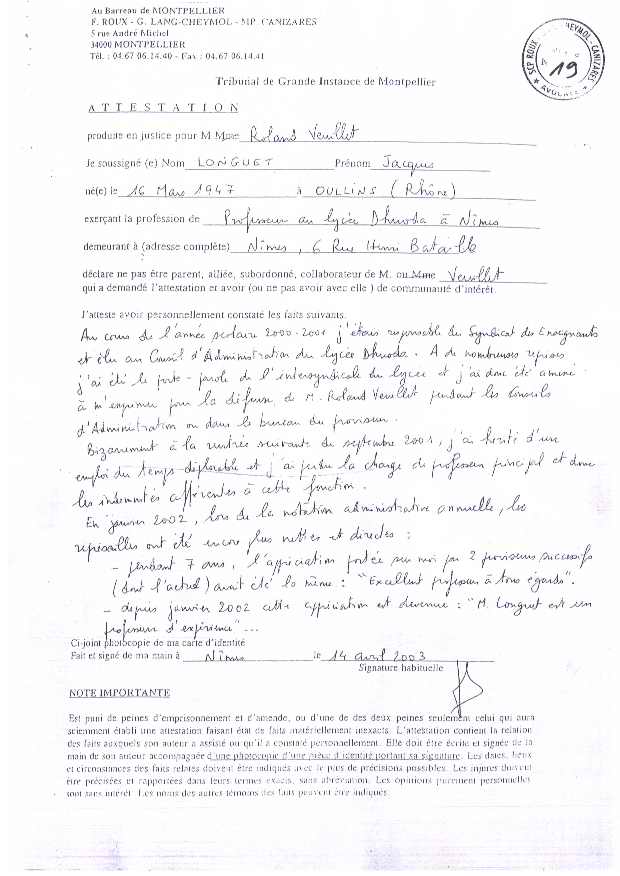 Au Barreau de MONTPELLIER
F. ROUX - G. LANG-CHEYMOL - MP. CANIZARES
5 rue André Michel
34000 MONTPELLIER
Tél. : 04.67.06.14.40 - Fax : 04.67.06.14.41
SCP ROUX CHEYMOL - CANIZARES
19
AVOCATS
Tribunal de Grande Instance de Montpellier
A T T E S T A T I O N
produite en justice pour M Mme Roland Veuillet
Je soussigné (e) Nom LONGUET Prénom Jacques
né(e) le 16 Mars 1947 à OULLINS (Rhône)
exerçant la profession de Professeur au lycée Dhuoda à Nîmes
demeurant à (adresse complète) Nîmes, 6 Rue Henri Bataille
déclare ne pas être parent, alliée, subordonné, collaborateur de M. ou Mme Veuillet
qui a demandé l'attestation et avoir (ou ne pas avoir avec elle ) de communauté d'intérêt.
J'atteste avoir personnellement constaté les faits suivants.
Au cours de l'année scolaire 2000-2001 j'étais responsable du Syndicat des Enseignants
et élu au Conseil d'Administration du lycée Dhuoda. A de nombreuses reprises
j'ai été le porte-parole de l'intersyndicale du lycée et j'ai donc été amené
à m'exprimer pour la défense de M. Roland Veuillet pendant les Conseils
d'Administration ou dans le bureau du proviseur.
Bizarrement à la rentrée suivante de septembre 2001, j'ai hérité d'un
emploi du temps déplorable et j'ai perdu la charge de professeur principal et donc
les indemnités afférentes à cette fonction.
En janvier 2002, lors de la notation administrative annuelle, les
représailles ont été encore plus nettes et directes :
- pendant 7 ans, l'appréciation portée sur moi par 2 proviseurs successifs
(dont l'actuel) avait été la même : "Excellent professeur à tous égards".
- depuis janvier 2002 cette appréciation est devenue : "M. Longuet est un
professeur d'expérience"...
Ci-joint photocopie de ma carte d'identité
Fait et signé de ma main à Nîmes le 14 avril 2003
Signature habituelle
NOTE IMPORTANTE
Est puni de peines d'emprisonnement et d'amende, ou d'une de des deux peines seulement celui qui aura
sciemment établi une attestation faisant état de faits matériellement inexacts. L'attestation contient la relation
des faits auxquels son auteur a assisté ou qu'il a constaté personnellement. Elle doit être écrite et signée de la
main de son auteur accompagnée d'une photocopie d'une pièce d'identité portant sa signature. Les dates, lieux
et circonstances des faits relatés doivent être indiqués avec le plus de précisions possibles. Les injures doivent
être précisées et rapportées dans leurs termes exacts, sans abréviation. Les opinions purement personnelles
sont sans intérêt. Les noms des autres témoins des faits peuvent être indiqués.